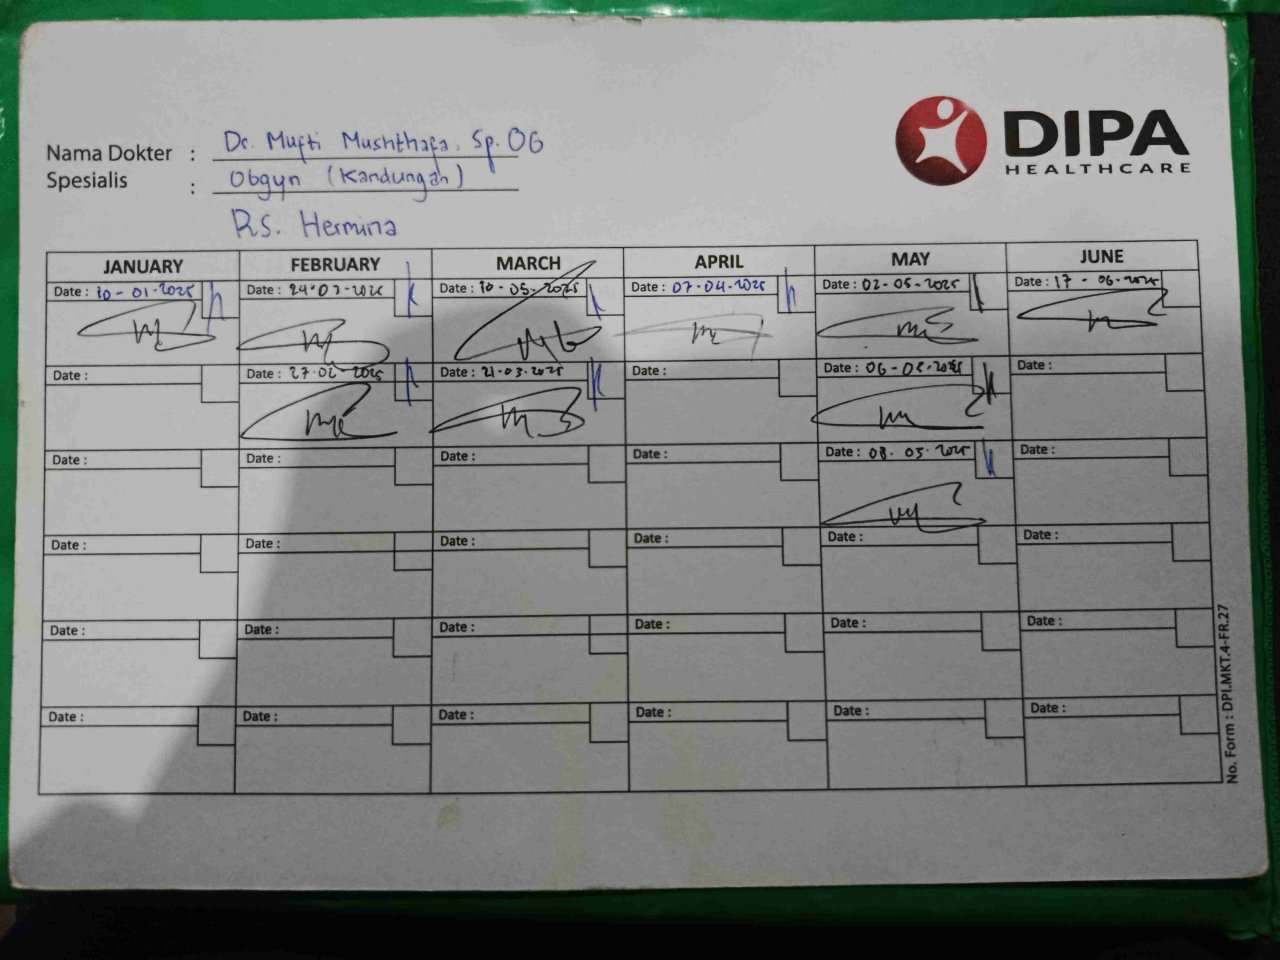 DIPA
HEALTHCARE
Nama Dokter : Dr. Mufti Mushthafa, Sp. OG
Spesialis : Obgyn (Kandungan)
R.S. Hermina
JANUARY FEBRUARY MARCH APRIL MAY JUNE
Date : 10-01-2025 Date : 24-02-2025 Date : 10-03-2025 Date : 07-04-2025 Date : 02-05-2025 Date : 17-06-2025
Date : Date : 27-02-2025 Date : 21-03-2025 Date : Date : 06-05-2025 Date :
Date : Date : Date : Date : Date : 08-05-2025 Date :
Date : Date : Date : Date : Date : Date :
Date : Date : Date : Date : Date : Date :
Date : Date : Date : Date : Date : Date :
No. Form : DPI.MKT.4-FR.27